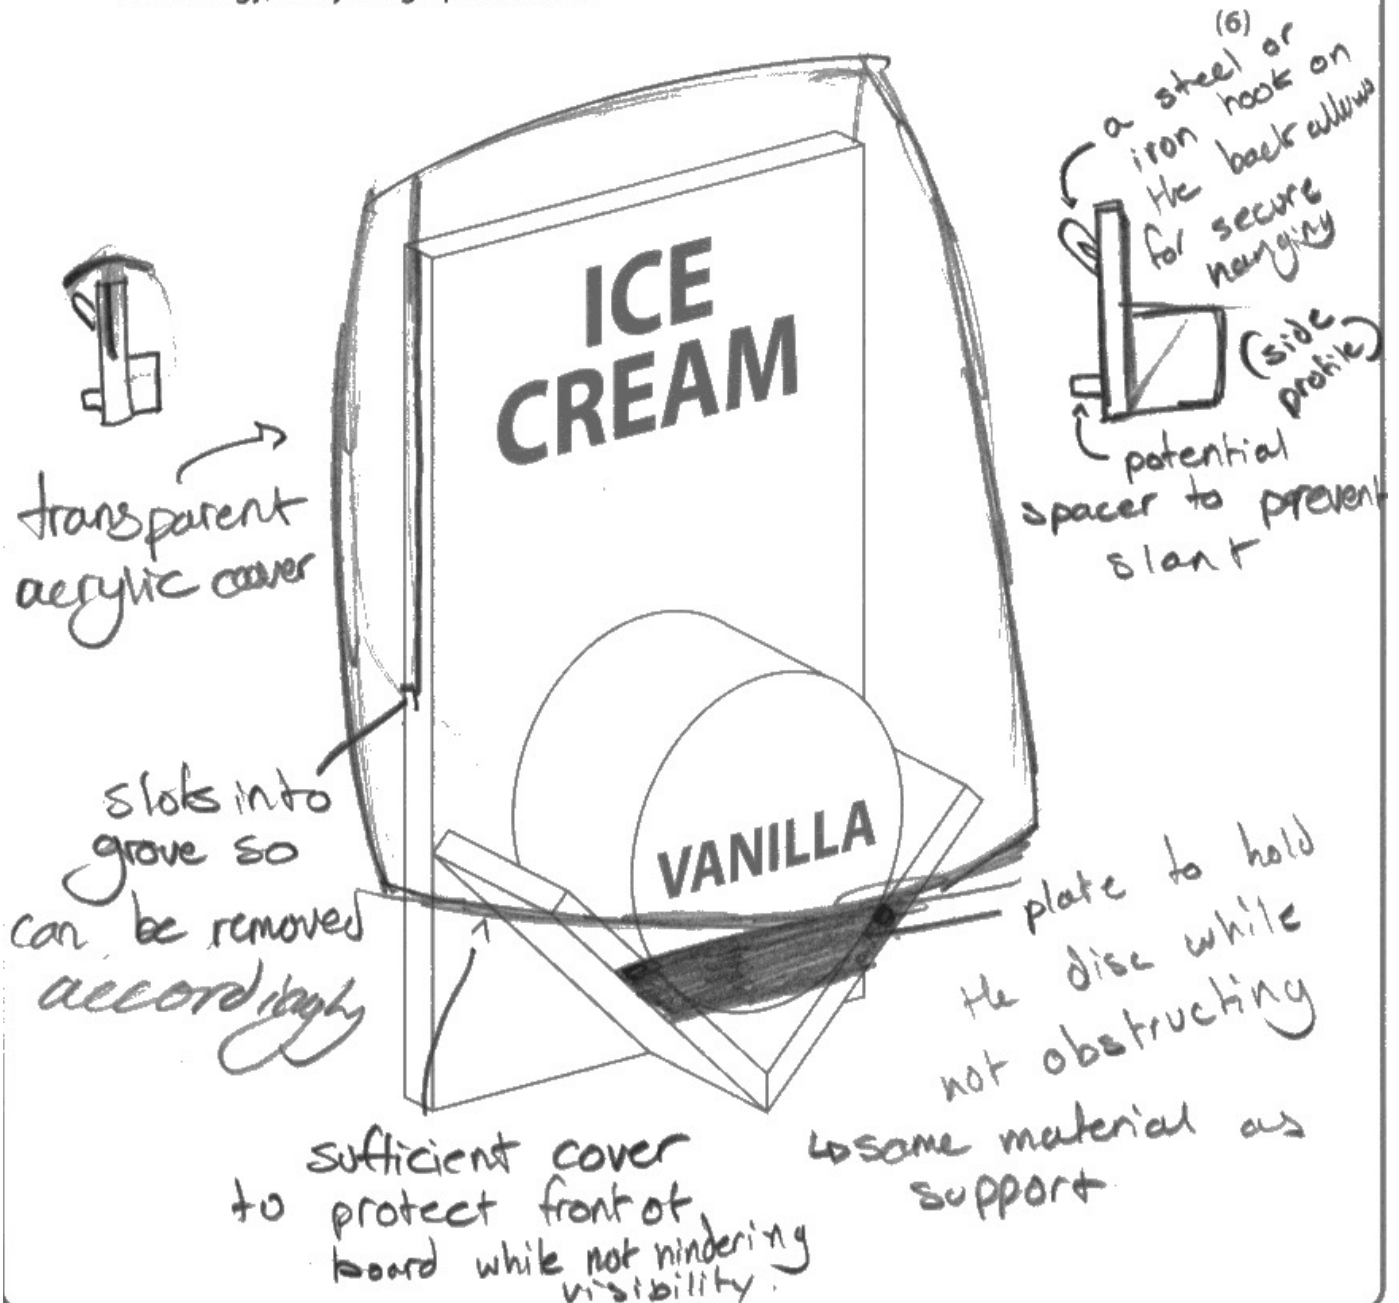 (6)
a steel or
iron hook on
the back allows
for secure
hanging
(side
profile)
potential
spacer to prevent
slant
ICE
CREAM
transparent
acrylic cover
slots into
grove so
can be removed
accordingly
VANILLA
plate to hold
the disc while
not obstructing
↳ same material as
support
sufficient cover
to protect front of
board while not hindering
visibility.